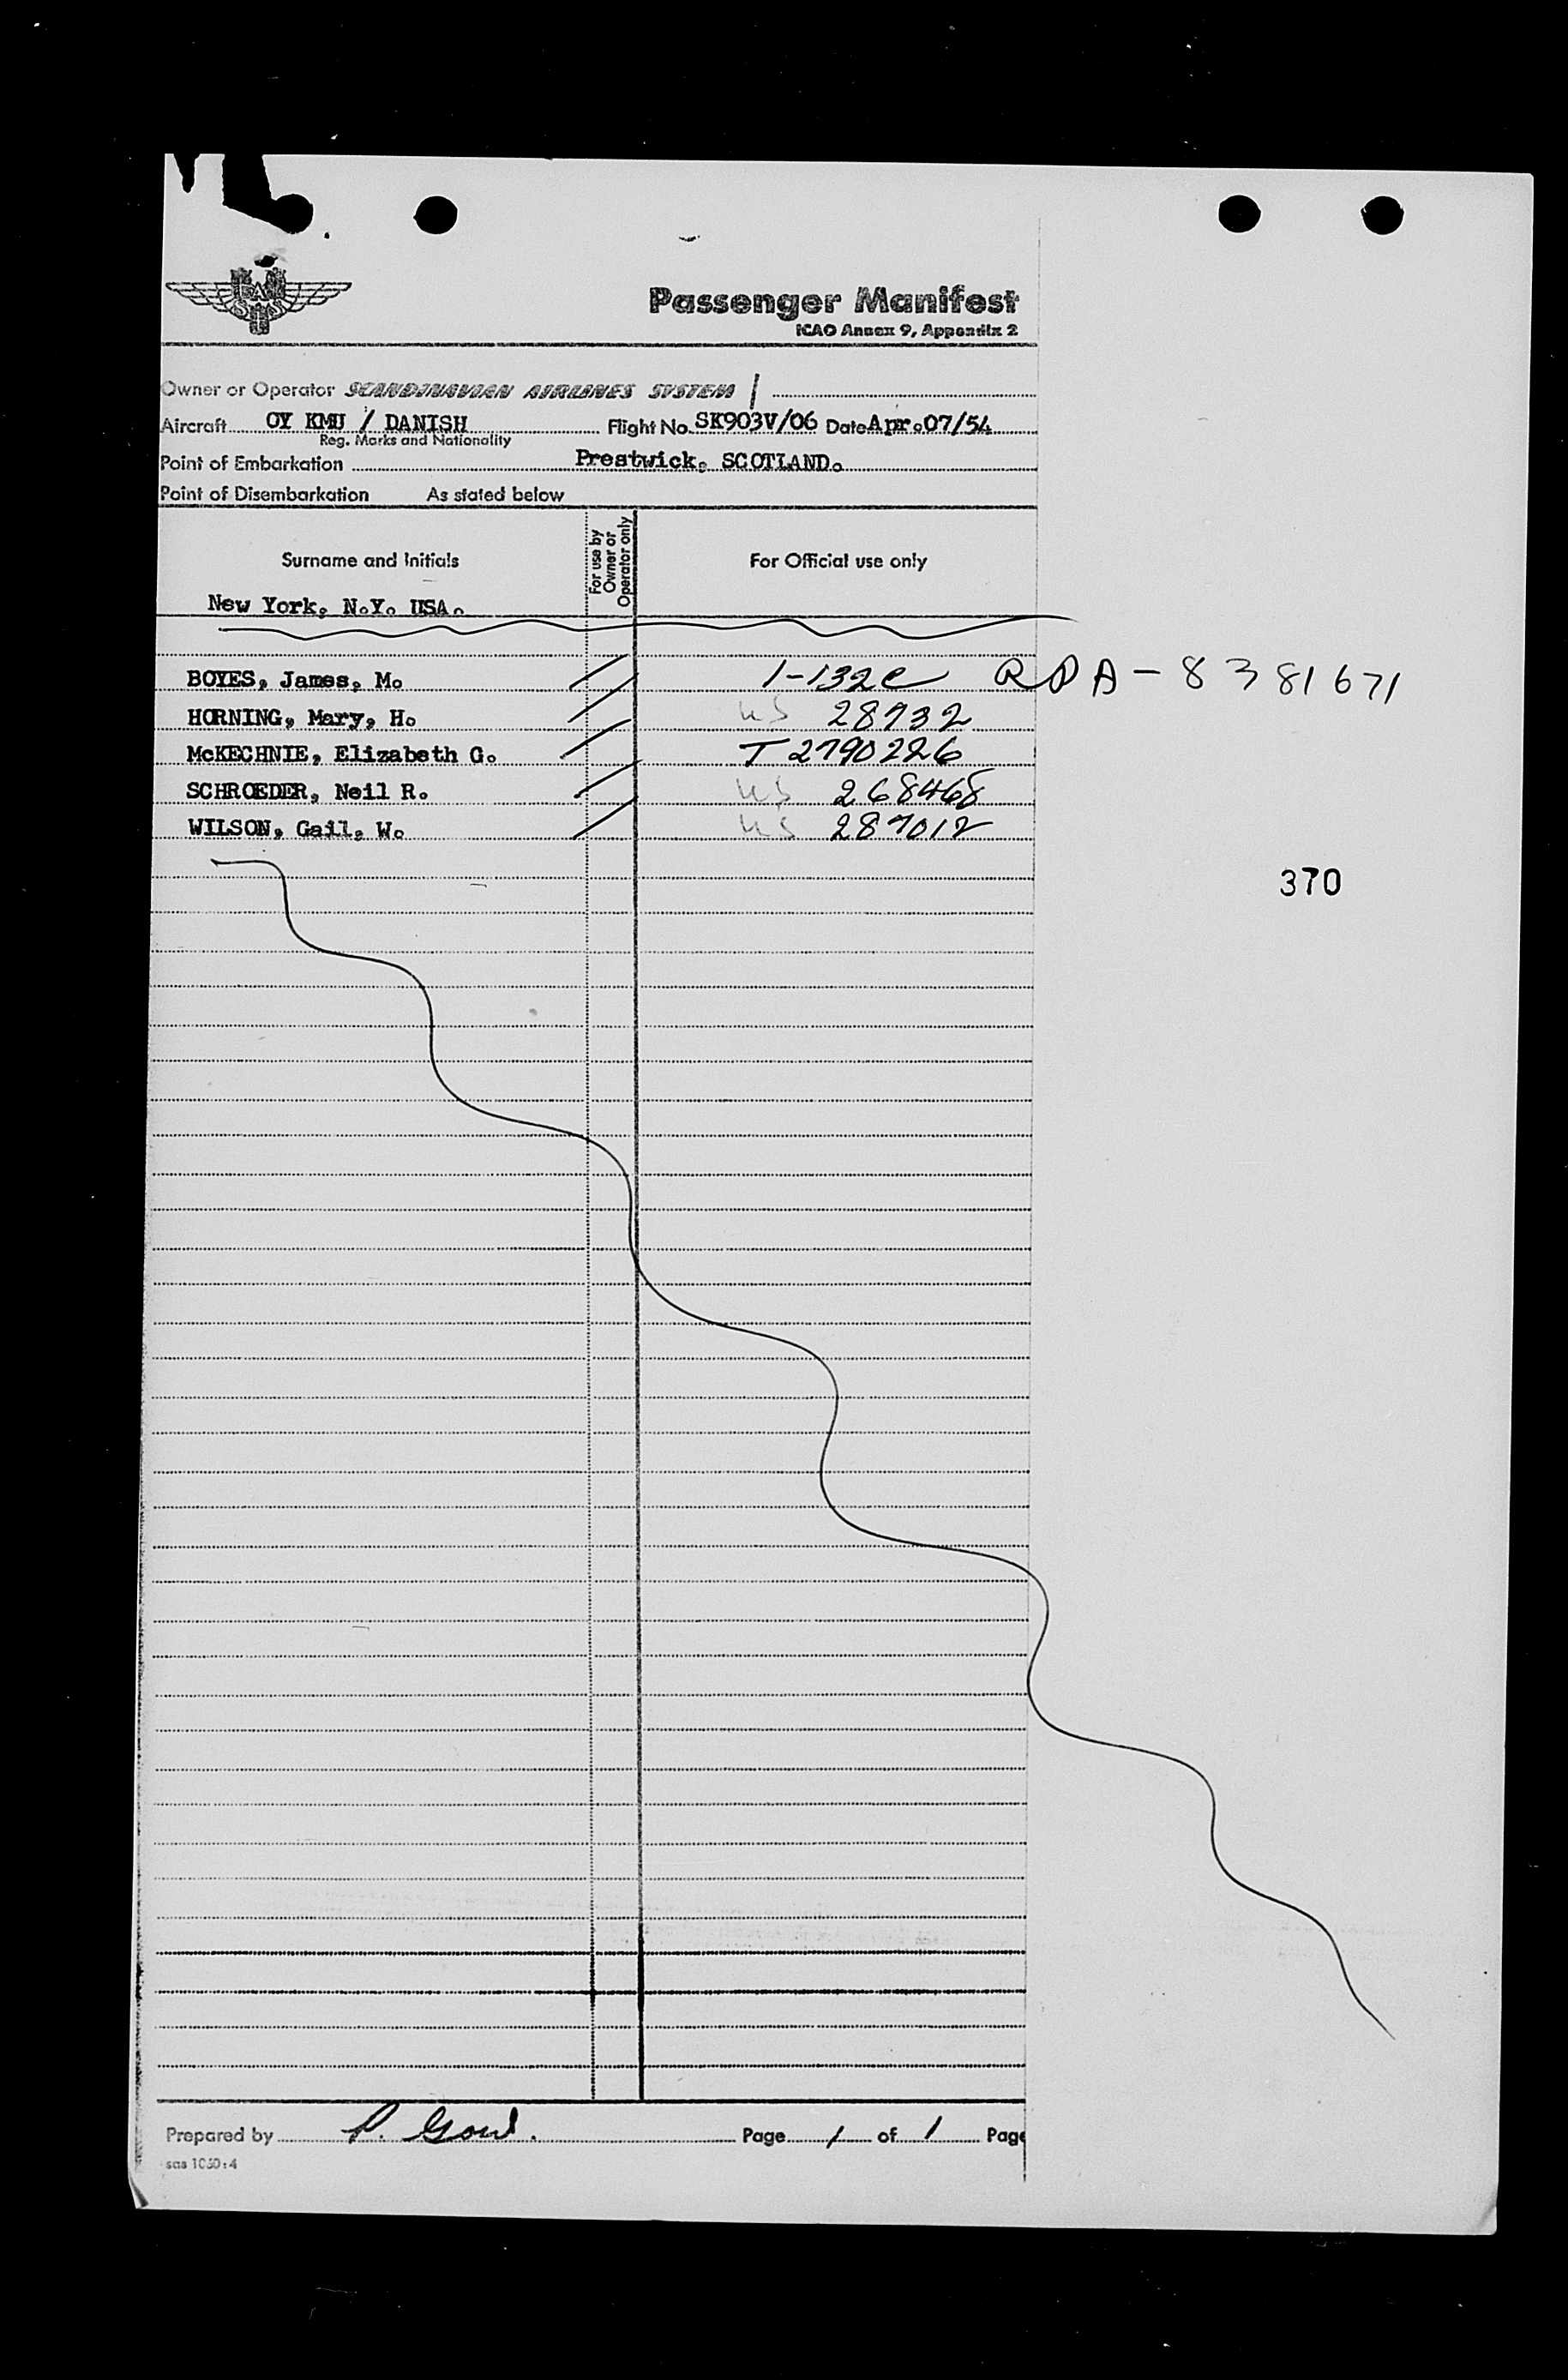 SAS
Passenger Manifest
ICAO Annex 9, Appendix 2
Owner or Operator SCANDINAVIAN AIRLINES SYSTEM
Aircraft OY KMU / DANISH Flight No. SK903V/06 Date Apr. 07/54
Reg. Marks and Nationality
Point of Embarkation Prestwick, SCOTLAND.
Point of Disembarkation As stated below
Surname and Initials For use by Owner or Operator only For Official use only
New York, N.Y. USA.
BOYES, James, M. 1-132c A-8381671
HORNING, Mary, H. US 28732
McKECHNIE, Elizabeth G. T 2790226
SCHROEDER, Neil R. US 268468
WILSON, Gail, W. US 287012
370
Prepared by P. Page 1 of 1 Page
sas 1050:4